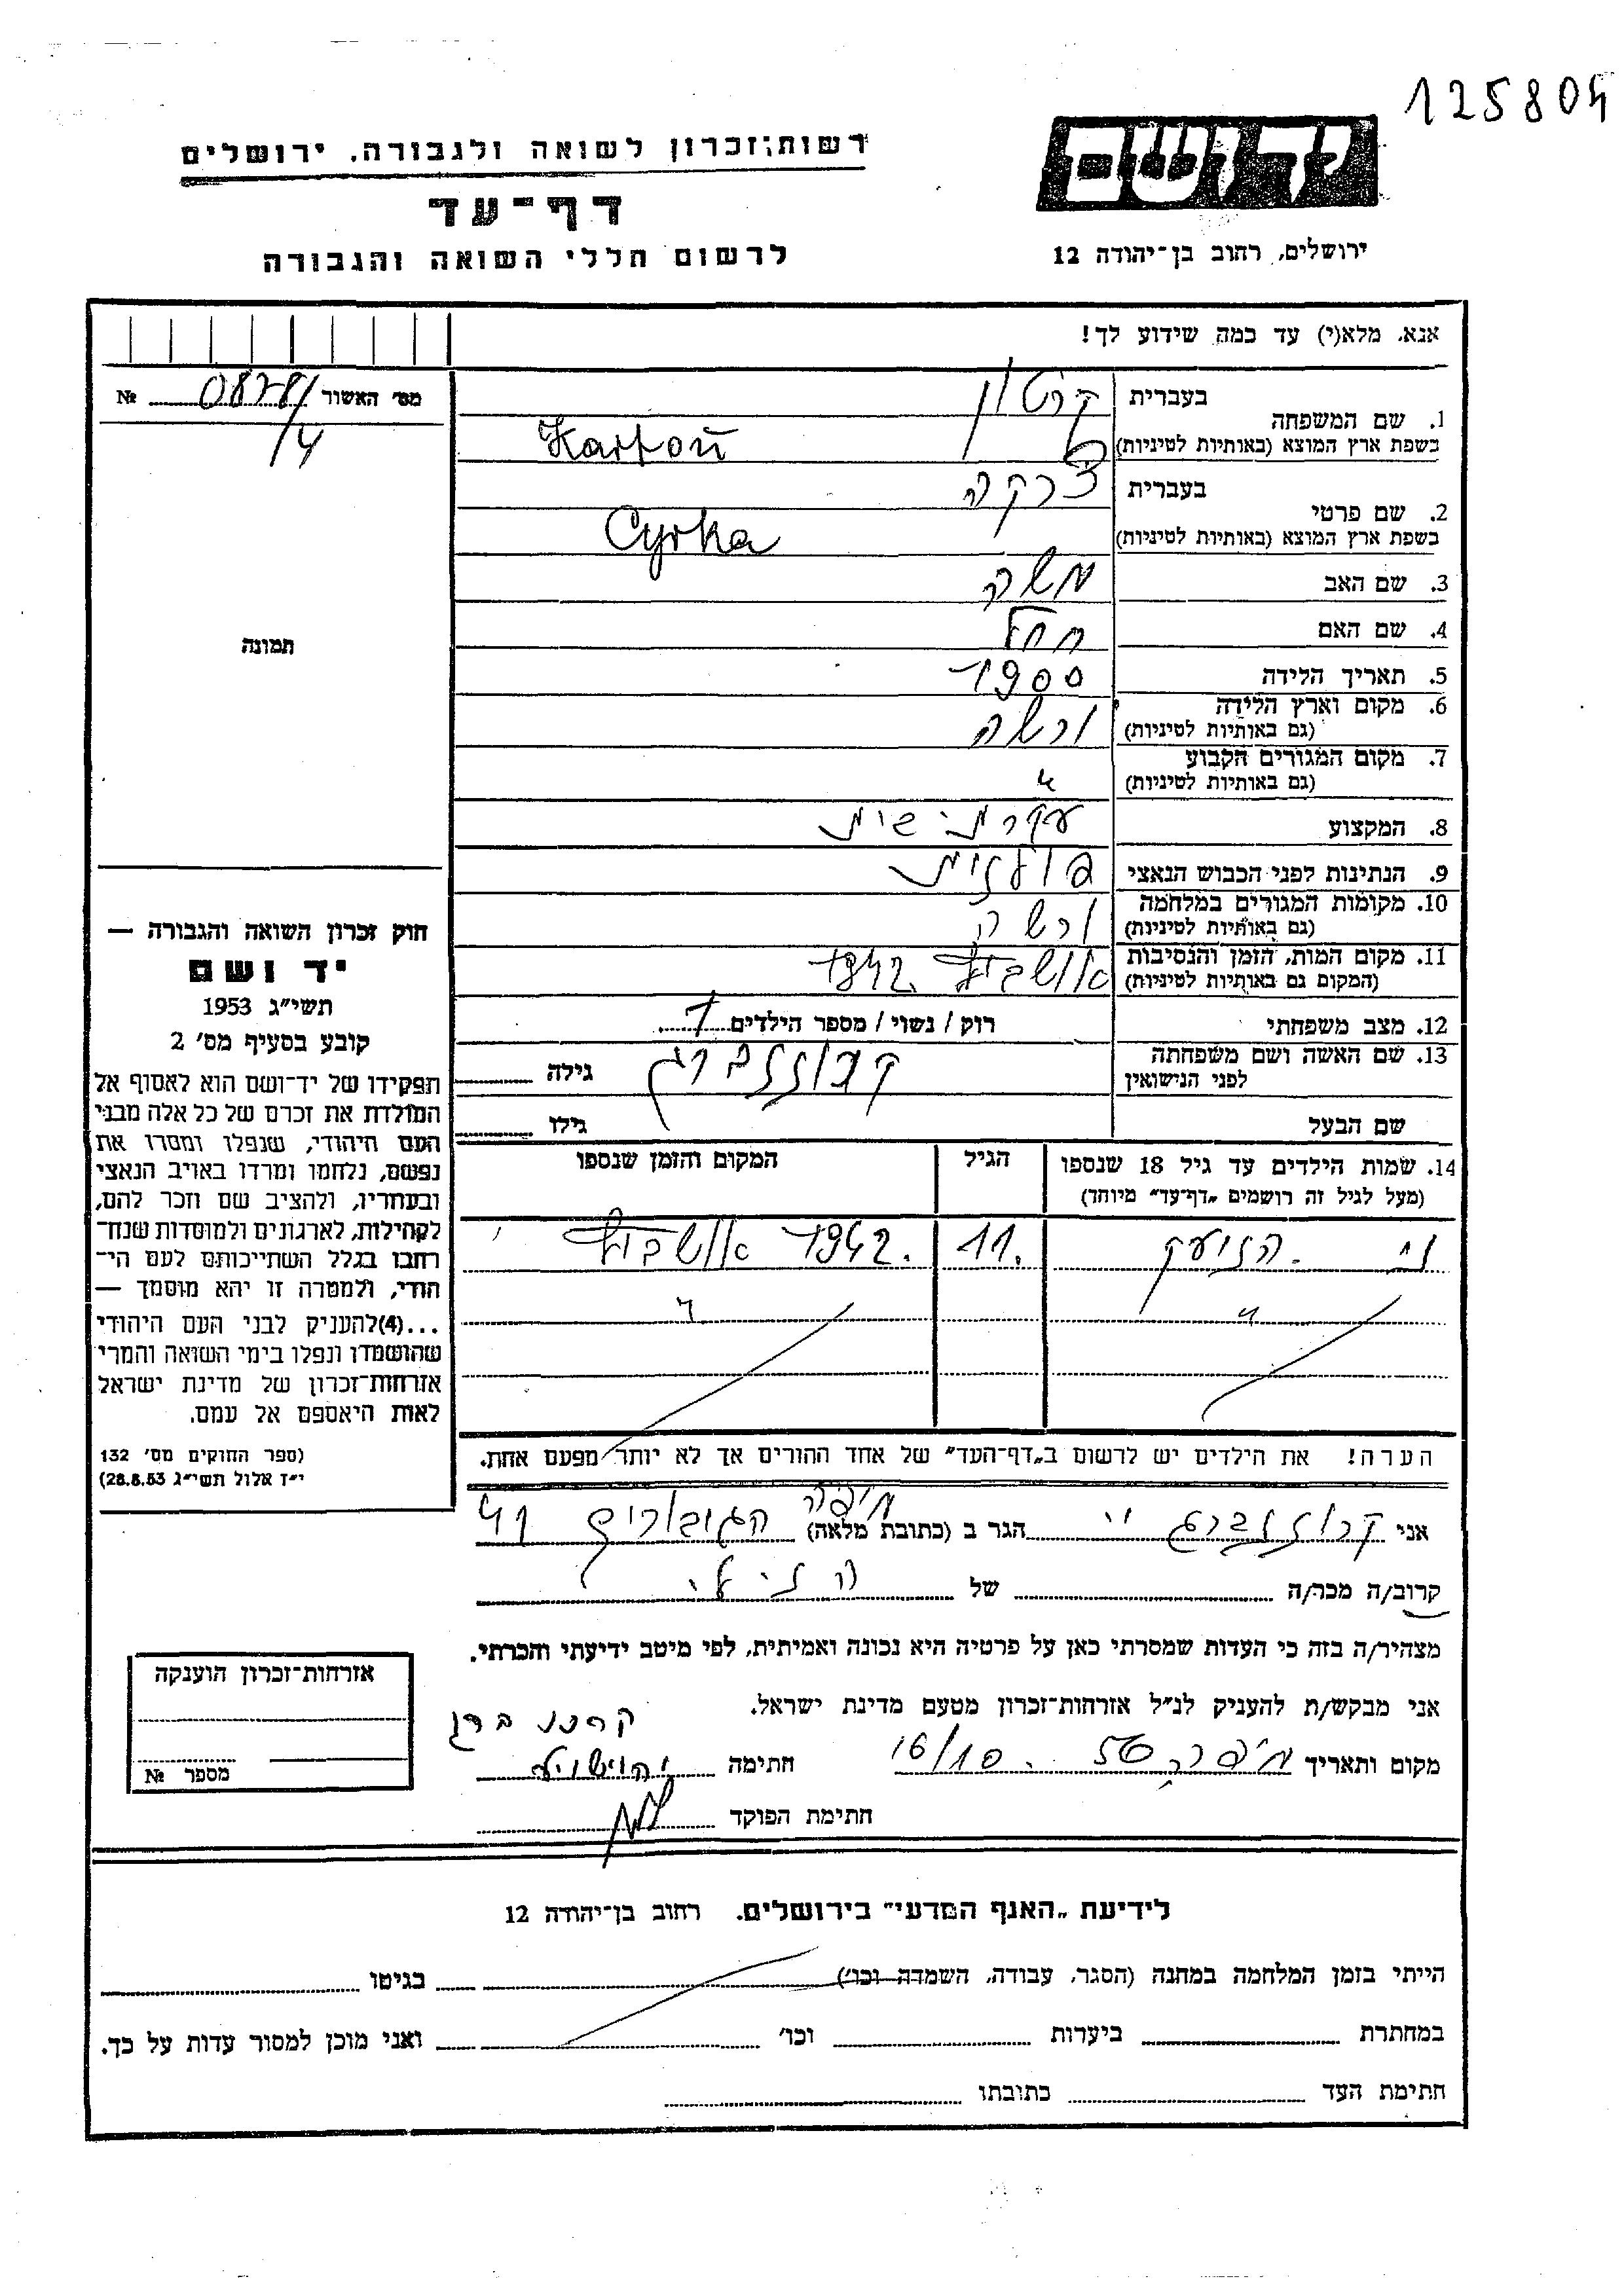 125804
רשות זכרון לשואה ולגבורה. ירושלים
יד ושם
דף-עד
לרשום חללי השואה והגבורה
ירושלים, רחוב בן-יהודה 12
אנא, מלא(י) עד כמה שידוע לך!
מס' האשור 0878/4 №
1. שם המשפחה בעברית קרטון
בשפת ארץ המוצא (באותיות לטיניות) Kartoń
2. שם פרטי בעברית צרקה
בשפת ארץ המוצא (באותיות לטיניות) Cyrka
3. שם האב משה
4. שם האם רחל
5. תאריך הלידה 1900
6. מקום וארץ הלידה
(גם באותיות לטיניות) ורשה
7. מקום המגורים הקבוע
(גם באותיות לטיניות) "
8. המקצוע עקרת-בית
9. הנתינות לפני הכבוש הנאצי פולנית
10. מקומות המגורים במלחמה
(גם באותיות לטיניות) ורשה
11. מקום המות, הזמן והנסיבות
(המקום גם באותיות לטיניות) אושביץ 1942
12. מצב משפחתי רוק / נשוי / מספר הילדים 1
13. שם האשה ושם משפחתה
לפני הנישואין קרוננברג גילה
שם הבעל גילו
14. שמות הילדים עד גיל 18 שנספו
(מעל לגיל זה רושמים "דף-עד" מיוחד)
הגיל
המקום והזמן שנספו
11. 1942. אושביץ
" "
הערה! את הילדים יש לרשום ב"דף-העד" של אחד ההורים אך לא יותר מפעם אחת.
תמונה
חוק זכרון השואה והגבורה —
יד ושם
תשי"ג 1953
קובע בסעיף מס' 2
תפקידו של יד-ושם הוא לאסוף אל
המולדת את זכרם של כל אלה מבני
העם היהודי, שנפלו ומסרו את
נפשם, נלחמו ומרדו באויב הנאצי
ובעוזריו, ולהציב שם וזכר להם,
לקהילות, לארגונים ולמוסדות שנח-
רבו בגלל השתייכותם לעם הי-
הודי, ולמטרה זו יהא מוסמך —
...(4)להעניק לבני העם היהודי
שהושמדו ונפלו בימי השואה והמרי
אזרחות-זכרון של מדינת ישראל
לאות היאספם אל עמם.
(ספר החוקים מס' 132
י"ד אלול תשי"ג 28.8.53)
אני קרוננברג י' הגר ב (כתובת מלאה) חיפה הגיבורים 41
קרוב/ה מכר/ה של
מצהיר/ה בזה כי העדות שמסרתי כאן על פרטיה היא נכונה ואמיתית, לפי מיטב ידיעתי והכרתי.
אני מבקש/ת להעניק לנ"ל אזרחות-זכרון מטעם מדינת ישראל.
מקום ותאריך חיפה 56 . 16/10 חתימה קרוננברג יהושע
חתימת הפוקד
אזרחות-זכרון הוענקה
מספר №
לידיעת "האגף המדעי" בירושלים. רחוב בן-יהודה 12
הייתי בזמן המלחמה במחנה (הסגר, עבודה, השמדה וכו') בגיטו
במחתרת ביערות וכו' ואני מוכן למסור עדות על כך.
חתימת העד כתובתו